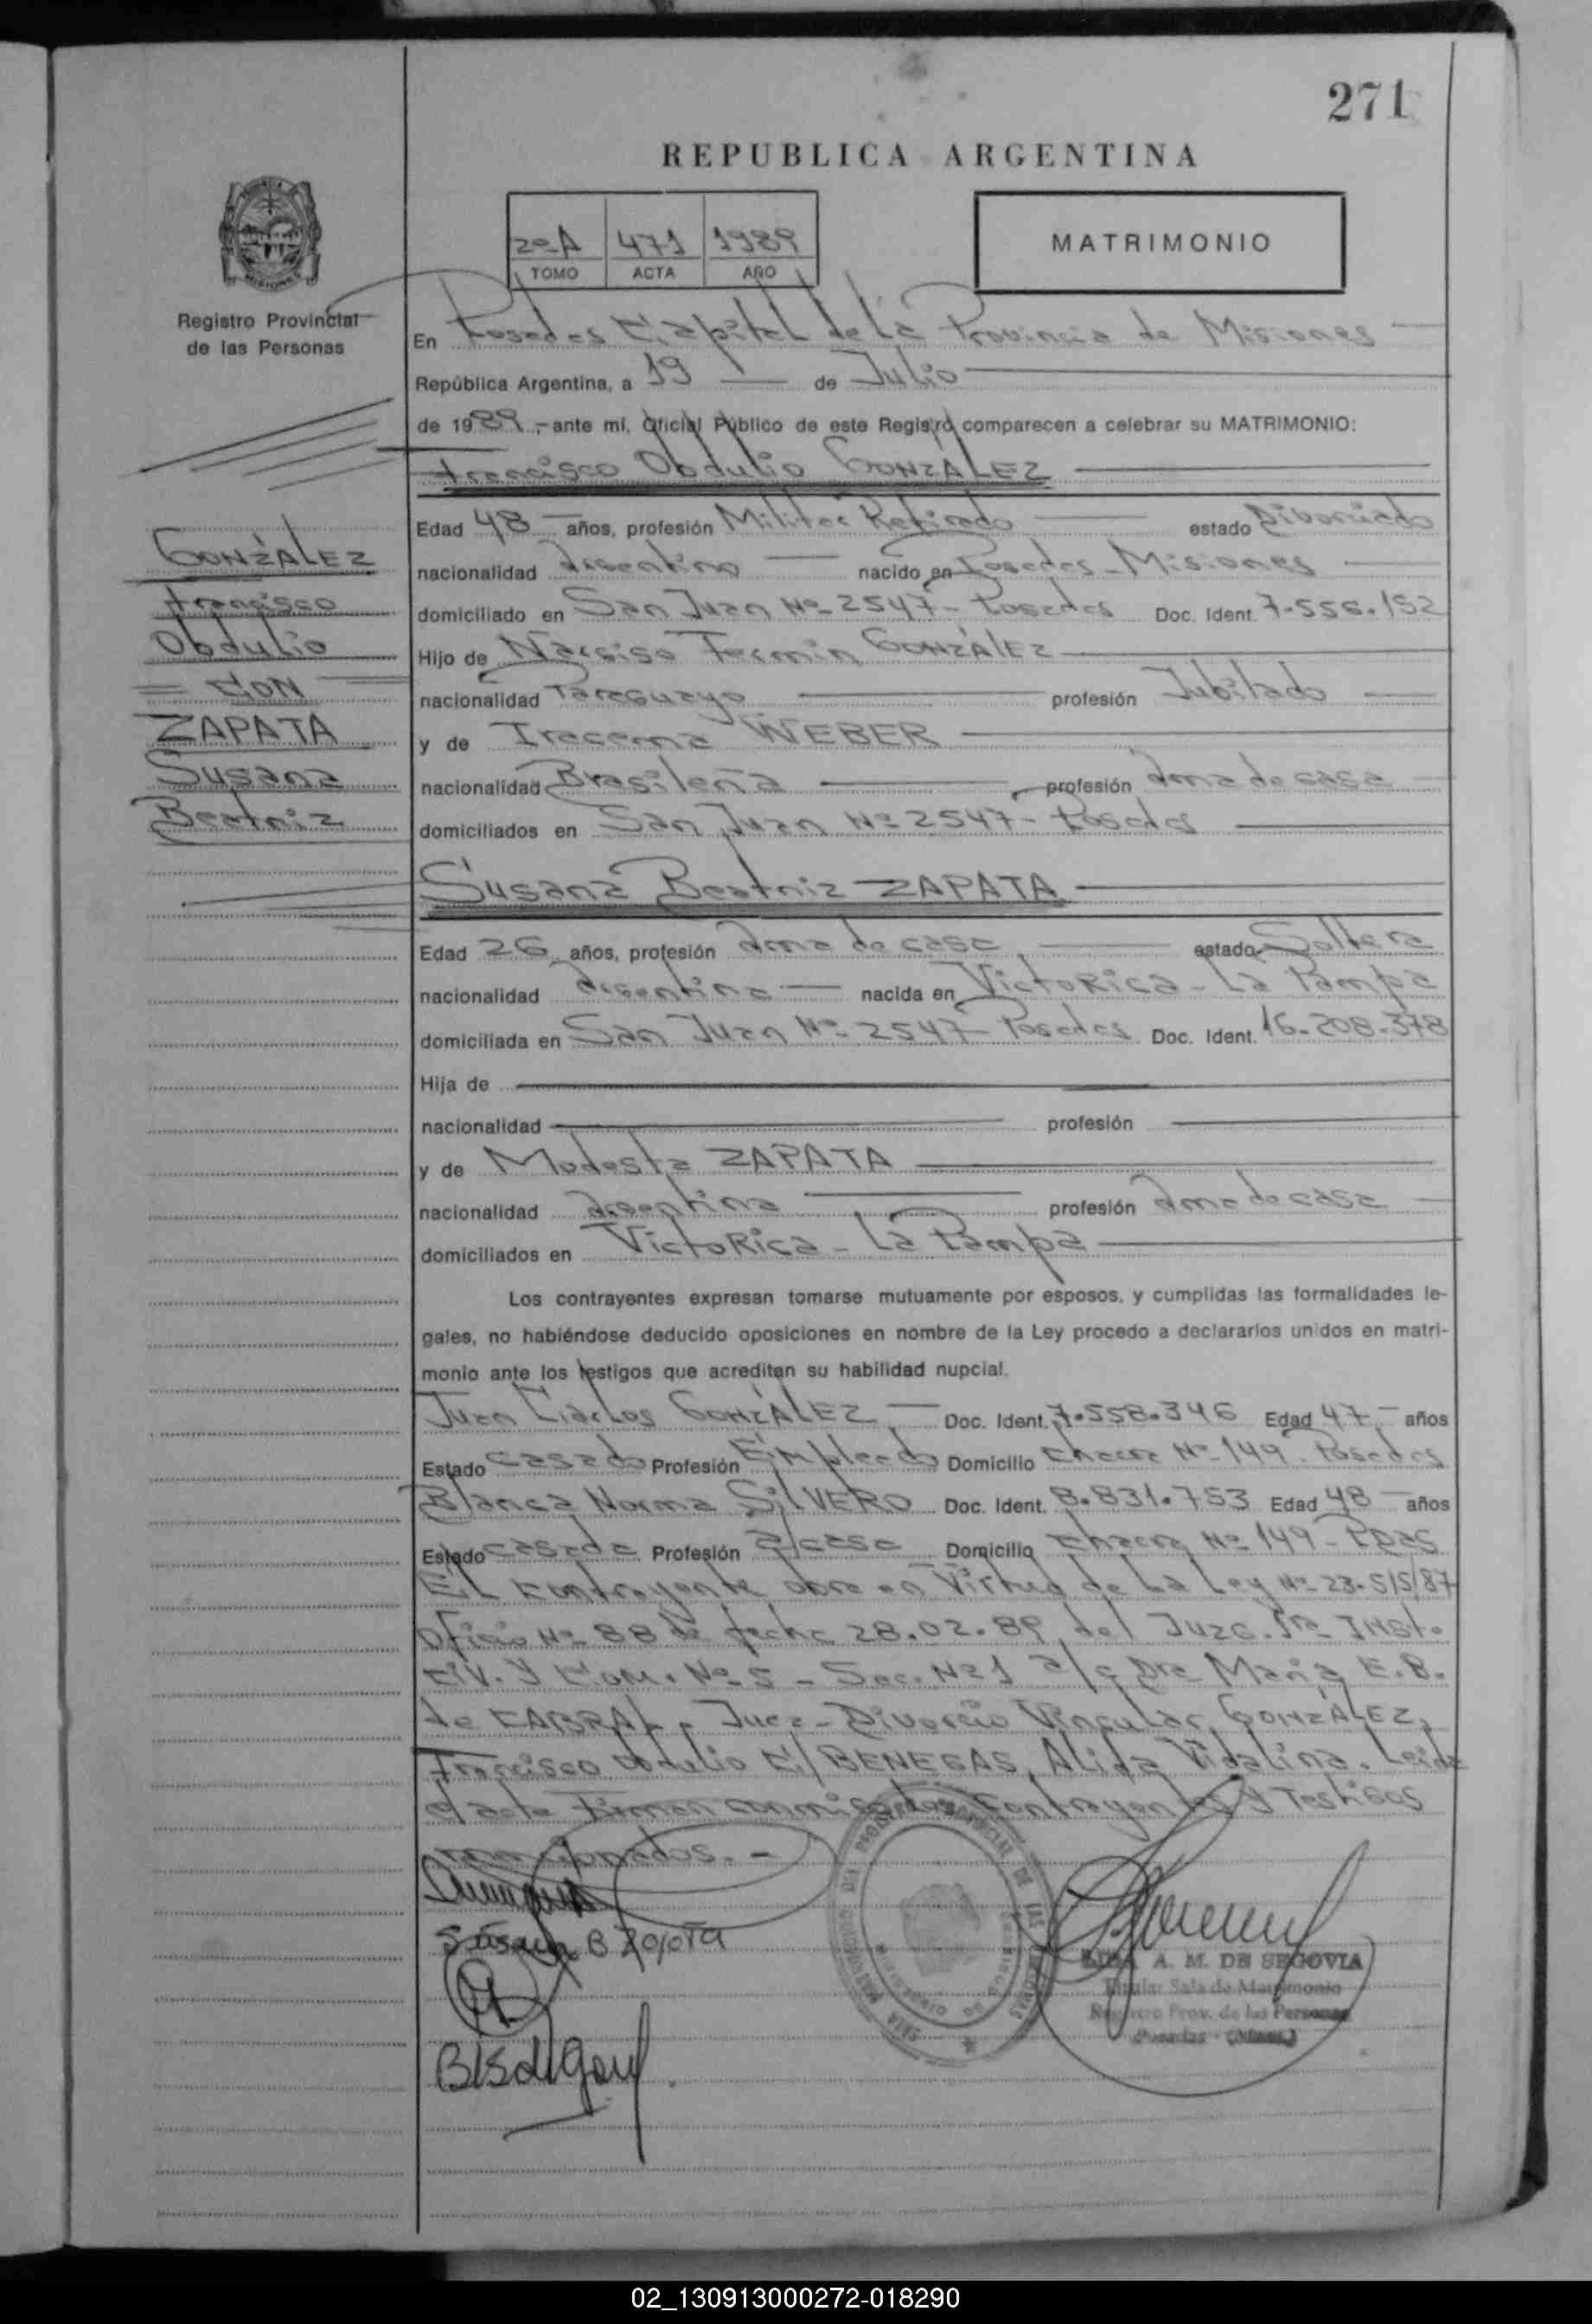 271
REPUBLICA ARGENTINA
2º A 471 1989
TOMO ACTA AÑO
MATRIMONIO
Registro Provincial
de las Personas
En Posadas Capital de la Provincia de Misiones
República Argentina, a 19 de Julio
de 1989,- ante mí, Oficial Público de este Registro comparecen a celebrar su MATRIMONIO:
Francisco Obdulio GONZÁLEZ
GONZÁLEZ
Francisco
Obdulio
= CON =
ZAPATA
Susana
Beatriz
Edad 48 años, profesión Militar Retirado estado Divorciado
nacionalidad Argentino nacido en Posadas - Misiones
domiciliado en San Juan Nº 2547 - Posadas Doc. Ident. 7.556.152
Hijo de Narciso Fermin GONZÁLEZ
nacionalidad Paraguayo profesión Jubilado
y de Iracema WEBER
nacionalidad Brasileña profesión Ama de casa
domiciliados en San Juan Nº 2547 - Posadas
Susana Beatriz ZAPATA
Edad 26 años, profesión Ama de casa estado Soltera
nacionalidad Argentina nacida en Victorica - La Pampa
domiciliada en San Juan Nº 2547 - Posadas Doc. Ident. 16.208.378
Hija de
nacionalidad profesión
y de Modesta ZAPATA
nacionalidad Argentina profesión Ama de casa
domiciliados en Victorica - La Pampa
Los contrayentes expresan tomarse mutuamente por esposos, y cumplidas las formalidades le-
gales, no habiéndose deducido oposiciones en nombre de la Ley procedo a declararlos unidos en matri-
monio ante los testigos que acreditan su habilidad nupcial.
Juan Carlos GONZÁLEZ Doc. Ident. 7.558.346 Edad 47 años
Estado Casado Profesión Empleado Domicilio Chacra Nº 149 - Posadas
Blanca Norma SILVERO Doc. Ident. 8.831.753 Edad 48 años
Estado Casada Profesión a/casa Domicilio Chacra Nº 149 - Pdas
El contrayente obra en Virtud de La Ley Nº 23.515/87
Oficio Nº 88 de fecha 28.02.89 del Juzg. 1ra INst.
CIV. Y COM. Nº 5 - Sec. Nº 1 a/c Dra Maria E.B.
de CABRAL - Juez - Divorcio Vincular GONZÁLEZ,
Francisco Obdulio C/ BENEGAS, Alida Vidalina. Leida
el acta Firman conmigo los Contrayentes y Testigos
mencionados. -
Susana B Zapata
A. M. DE SEGOVIA
Titular Sala de Matrimonio
Registro Prov. de las Personas
Posadas - (Mnes.)
02_130913000272-018290